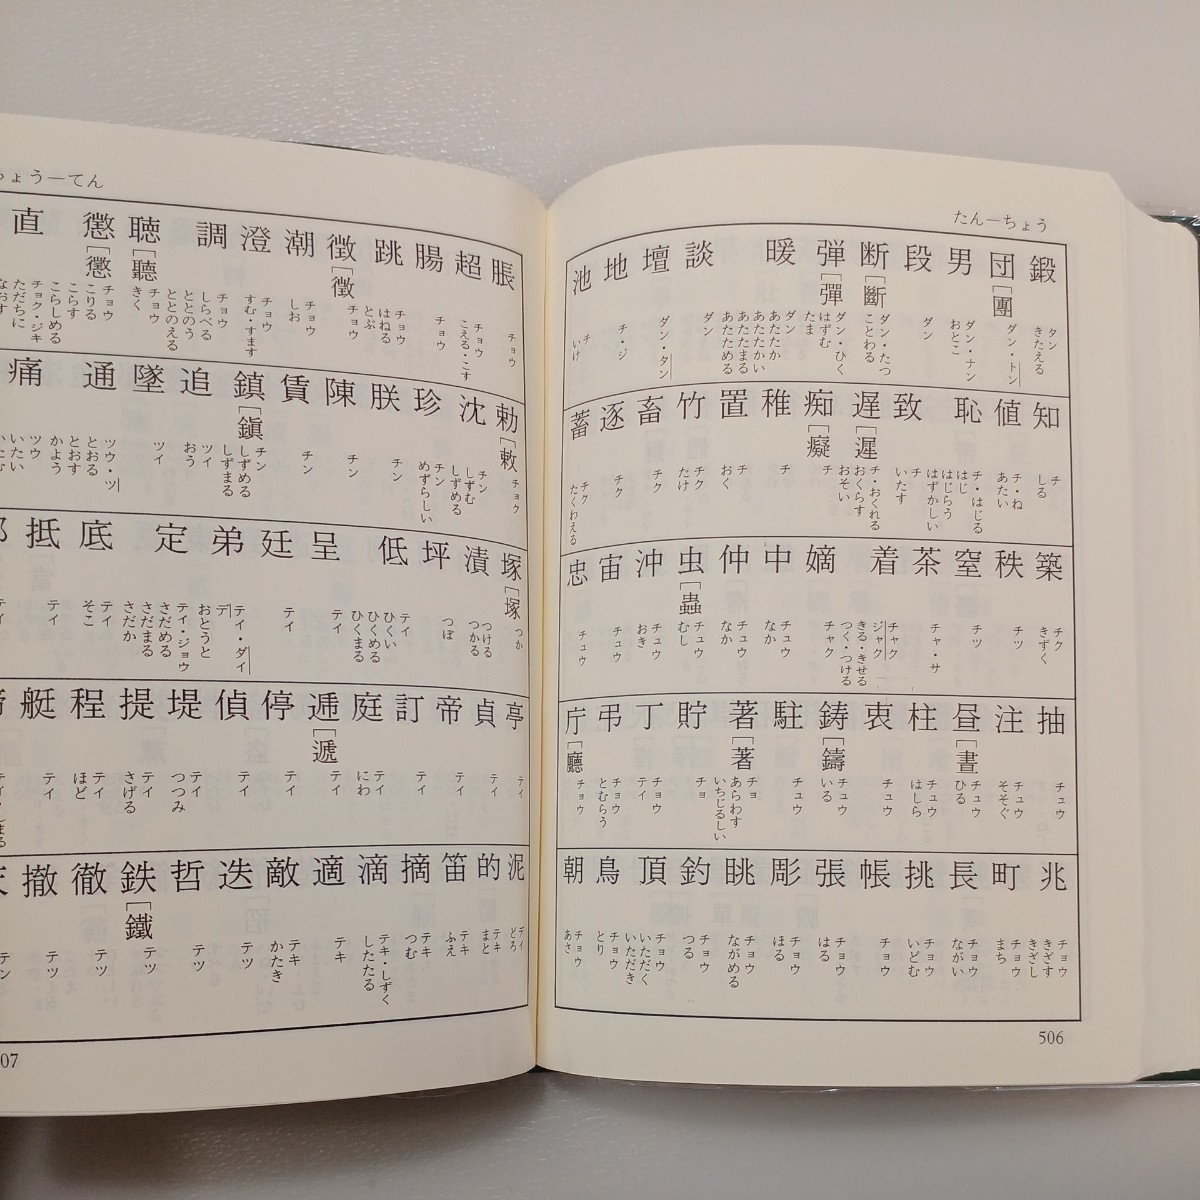 たん—ちょう
鍛 タン きたえる
団[團] ダン・トン
男 ダン・ナン おとこ
段 ダン
断[斷] ダン・たつ ことわる
弾[彈] ダン・ひく はずむ たま
暖 ダン あたたか あたたかい あたたまる あたためる
談 ダン
壇 ダン・タン
地 チ・ジ
池 チ いけ
知 チ しる
値 チ・ね あたい
恥 チ・はじる はじ はじらう はずかしい
致 チ いたす
遅[遲] チ・おくれる おくらす おそい
痴[癡] チ
稚 チ
置 チ おく
竹 チク たけ
畜 チク
逐 チク
蓄 チク たくわえる
築 チク きずく
秩 チツ
窒 チツ
茶 チャ・サ
着 チャク ジャク きる・きせる つく・つける
嫡 チャク
中 チュウ なか
仲 チュウ なか
虫[蟲] チュウ むし
沖 チュウ おき
宙 チュウ
忠 チュウ
抽 チュウ
注 チュウ そそぐ
昼[晝] チュウ ひる
柱 チュウ はしら
衷 チュウ
鋳[鑄] チュウ いる
駐 チュウ
著[著] チョ あらわす いちじるしい
貯 チョ
丁 チョウ テイ
弔 チョウ とむらう
庁[廳] チョウ
兆 チョウ きざす きざし
町 チョウ まち
長 チョウ ながい
挑 チョウ いどむ
帳 チョウ
張 チョウ はる
彫 チョウ ほる
眺 チョウ ながめる
釣 チョウ つる
頂 チョウ いただく いただき
鳥 チョウ とり
朝 チョウ あさ
506
ちょう—てん
脹 チョウ
超 チョウ こえる・こす
腸 チョウ
跳 チョウ はねる とぶ
徴[徵] チョウ
潮 チョウ しお
澄 チョウ すむ・すます
調 チョウ しらべる ととのう ととのえる
聴[聽] チョウ きく
懲[懲] チョウ こりる こらす こらしめる
直 チョク・ジキ ただちに なおす
勅[敕] チョク
沈 チン しずむ しずめる
珍 チン めずらしい
朕 チン
陳 チン
賃 チン
鎮[鎭] チン しずめる しずまる
追 ツイ おう
墜 ツイ
通 ツウ・ツ とおる とおす かよう
痛 ツウ いたい いたむ
塚[塚] つか
漬 つける つかる
坪 つぼ
低 テイ ひくい ひくめる ひくまる
呈 テイ
廷 テイ
弟 テイ・ダイ デ おとうと
定 テイ・ジョウ さだめる さだまる さだか
底 テイ そこ
抵 テイ
テイ
亭 テイ
貞 テイ
帝 テイ
訂 テイ
庭 テイ にわ
逓[遞] テイ
停 テイ
偵 テイ
堤 テイ つつみ
提 テイ さげる
程 テイ ほど
艇 テイ
泥 デイ どろ
的 テキ まと
笛 テキ ふえ
摘 テキ つむ
滴 テキ・しずく したたる
適 テキ
敵 テキ かたき
迭 テツ
哲 テツ
鉄[鐵] テツ
徹 テツ
撤 テツ
テン
07